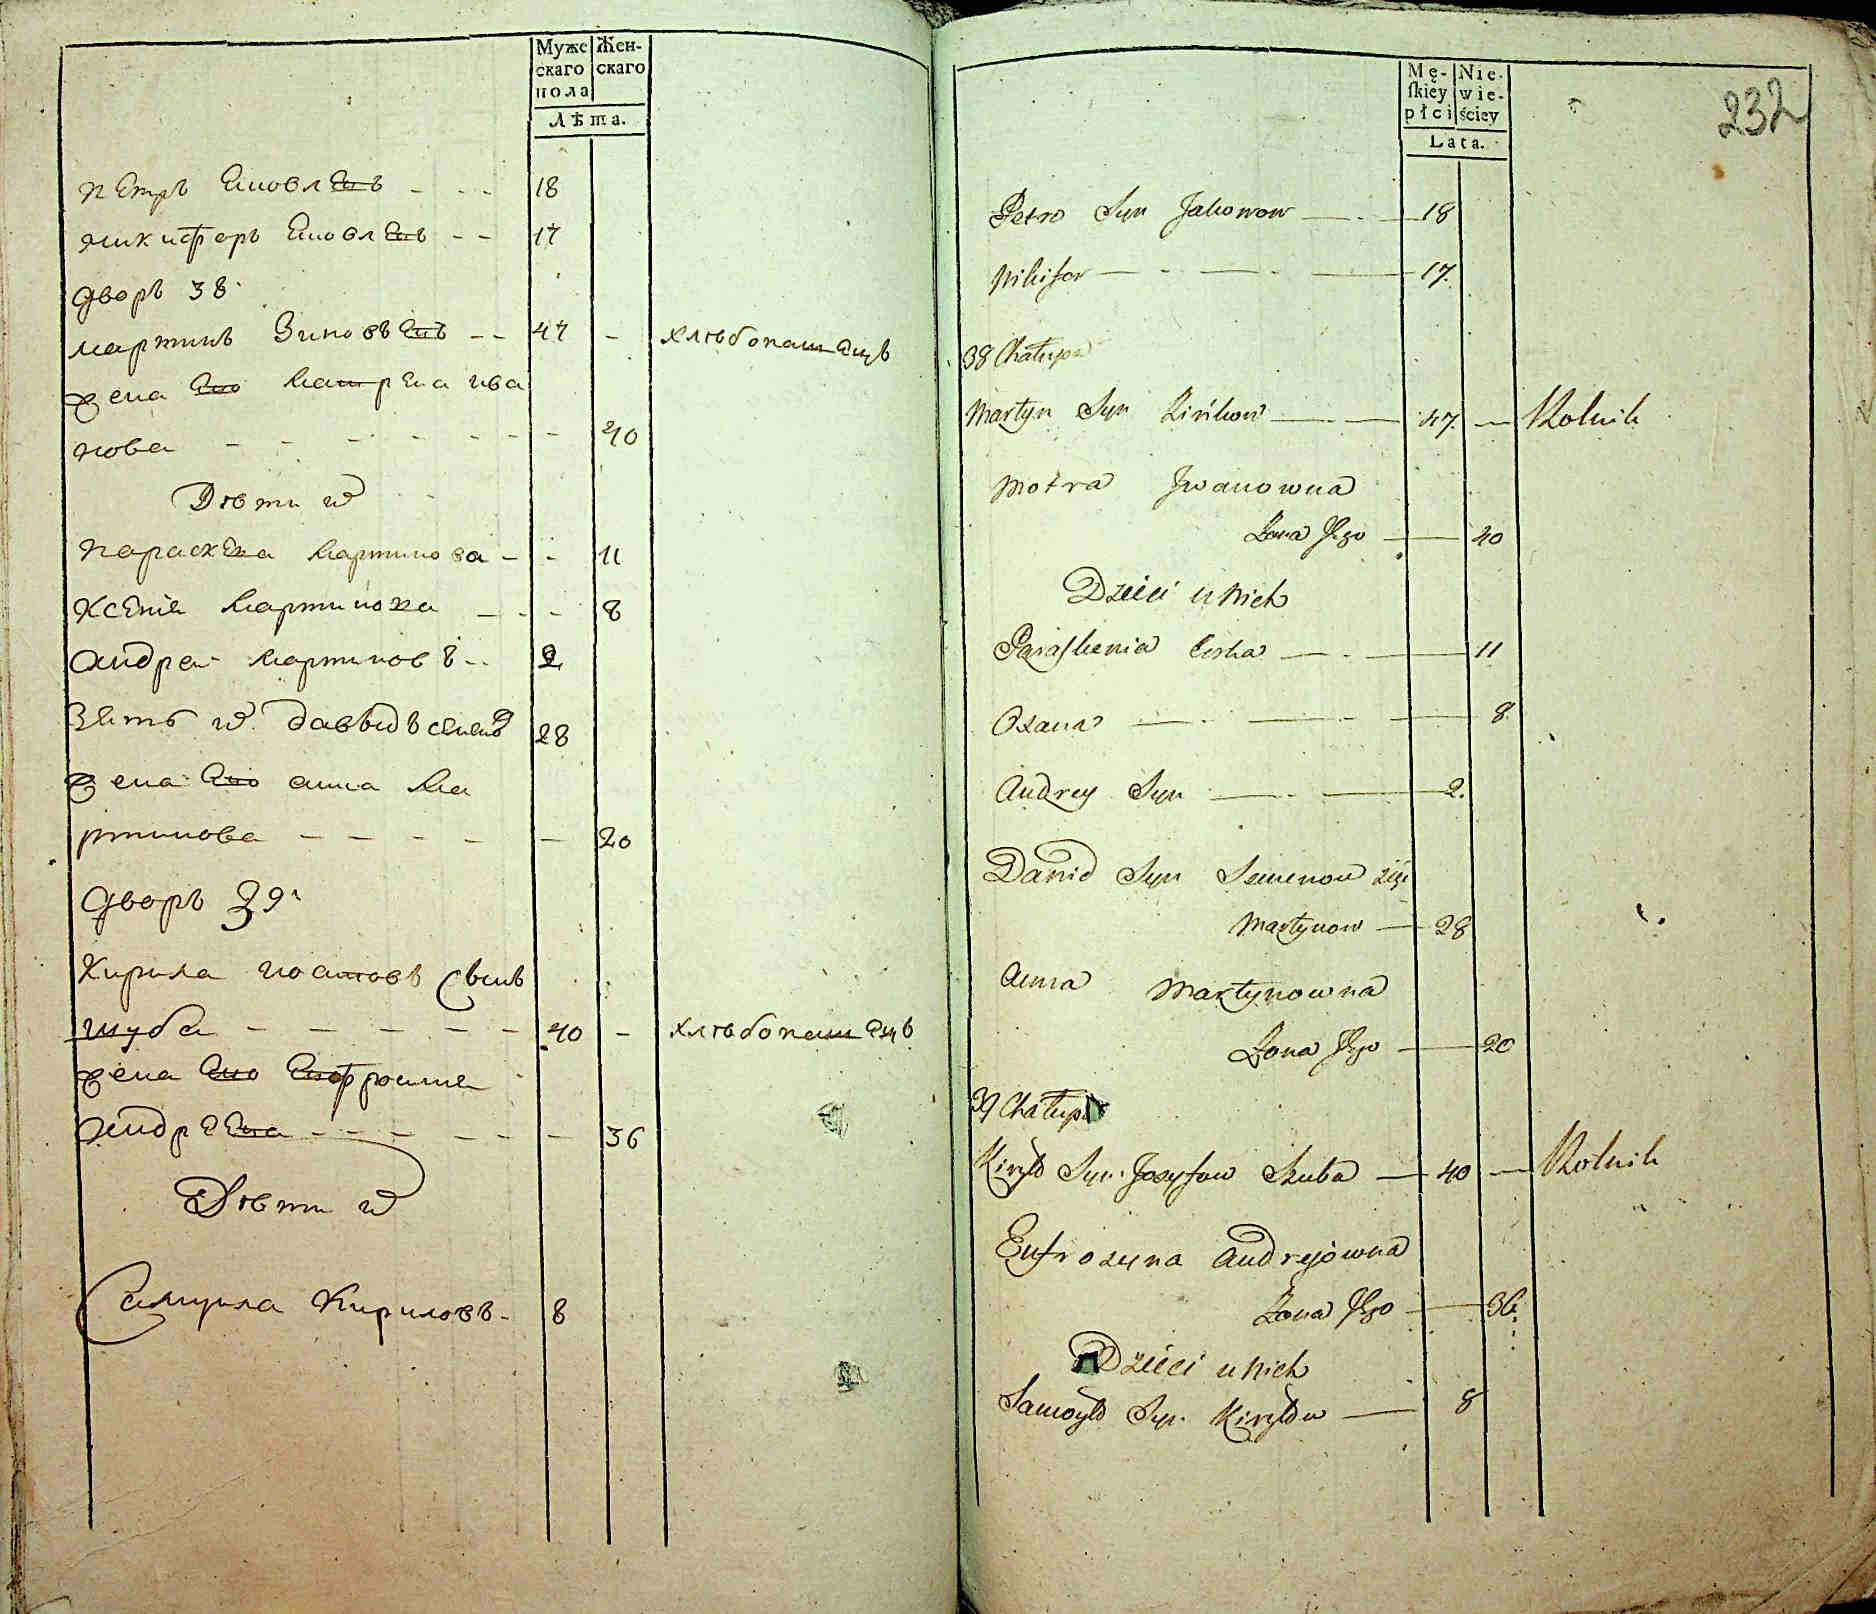 Муже
скаго
пола
Жен-
скаго
Лѣта.
Петръ Яковлевъ - - - 18
Никифоръ Яковлевъ - - 17
Дворъ 38.
Мартинъ Зиновъевъ - - 47 - хлѣбопашецъ
жена его Матрена Ива
нова - - - - - - - 40
Дѣти ихъ
Параскева Мартинова - - 11
Ксенiя Мартинова - - - 8
Андреи Мартиновъ - - 2
Зять ихъ Давыдъ Семеновъ 28
жена его Анна Ма
ртинова - - - - - 20
Дворъ 39.
Кирила Иосиповъ сынъ
Шуба - - - - - - 40 - хлѣбопашецъ
жена его Ефросиня
Андреева - - - - - - - 36
Дѣти ихъ
Самуила Кириловъ - 8
232
Mę-
skiéy
płci
Nie-
wie-
ściey
Lata.
Petro Syn Jakowow 18
Nikifor 17.
38 Chałupa
Martyn Syn Zińkow 47. Rolnik
Motra Jwanowna
Żona Jego 40
Dzieci u Nich
Paraskewia Corka 11
Oxana 8.
Andrey Syn 2.
Dawid Syn Semenow zięć
Martynow 28
Anna Martynowna
Żona Jego 20
39 Chałupa
Kiryło Syn Jozyfow Szuba 40 Rolnik
Eufrozyna Andrejówna
Żona Jego 36.
Dzieci u Nich
Samoyło Syn Kiryłow 8